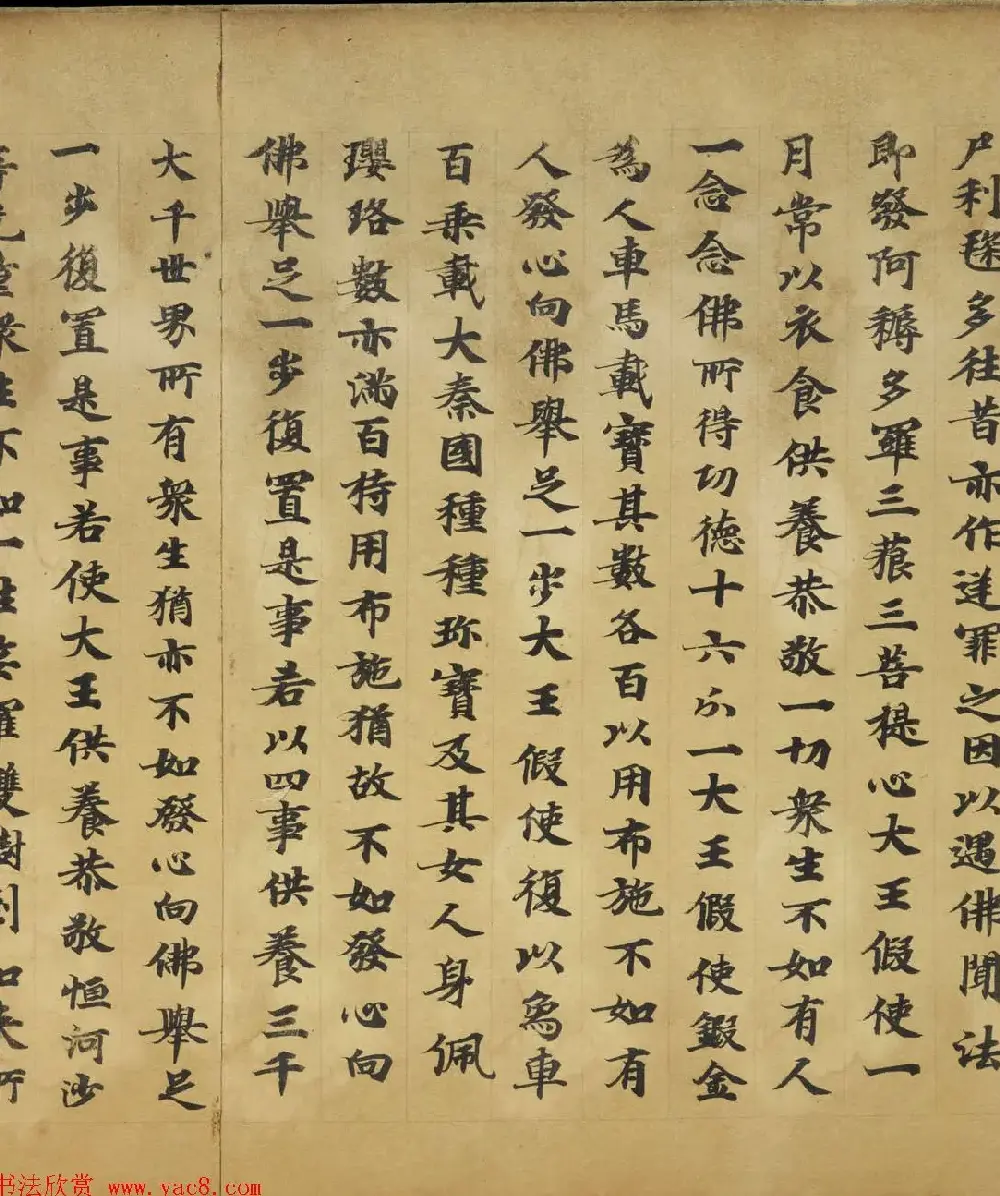 尸利毱多往昔亦作逆罪之因以遇佛聞法
即發阿耨多羅三藐三菩提心大王假使一
月常以衣食供養恭敬一切衆生不如有人
一念念佛所得功德十六分一大王假使鍛金
為人車馬載寶其數各百以用布施不如有
人發心向佛舉足一步大王假使復以象車
百乘載大秦國種種珎寶及其女人身佩
瓔珞數亦滿百持用布施猶故不如發心向
佛舉足一步復置是事若以四事供養三千
大千世界所有衆生猶亦不如發心向佛舉足
一步復置是事若使大王供養恭敬恒河沙
等无量衆生不如一往娑羅雙樹到如来所
书法欣赏 www.yac8.com